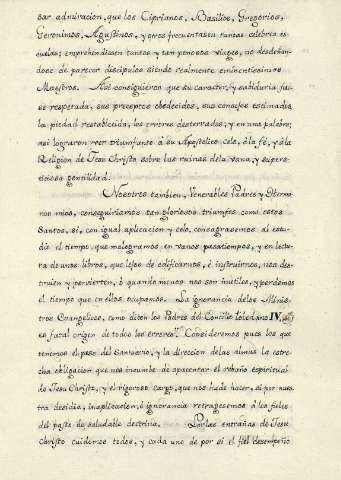 sar admiracion, que los Ciprianos, Basilios, Gregorios,
Geronimos, Agustinos, y otros frecuentasen tantas celebres es
cuelas; emprehendiesen tantos y tan penosos viages, no desdeñan-
dose de parecer discipulos siendo realmente eminentisimos
Maestros. Asi consiguieron que su caracter, y sabiduria fue-
se respetada, sus preceptos obedecidos, sus consejos estimados,
la piedad restablecida, los errores desterrados, y en una palabra;
asi lograron ver triumfante à su Apostolico celo, à la fé, y à la
Religion de Jesu Christo sobre las ruinas de la vana, y supers-
ticiosa gentilidad.
Nosotros tambien, Venerables Padres y Herma-
nos mios, conseguiriamos tan gloriosos triumfos como estos
Santos, si, con igual aplicacion y celo, consagrasemos al estu-
dio el tiempo, que malogramos en vanos pasatiempos, y en lectu-
ra de unos libros, que lejos de edificarnos, è instruirnos, nos des-
truien y pervierten, ò quando menos nos son inutiles, y perdemos
el tiempo que en ellos ocupamos. La ignorancia de los Minis-
tros Evangelicos, como dicen los Padres del Concilio Toledano IV,
es fatal origen de todos los errores. Consideremos pues los que
tenemos el peso del Santuario, y la direccion de las almas la estre-
cha obligacion que nos incumbe de apacentar el rebaño espiritual
de Jesu Christo, y el rigoroso cargo, que nos hade hacer, si por nues-
tra desidia, inaplicacion, è ignorancia retragesemos à los fieles
del pasto de saludable doctrina. Por las entrañas de Jesu
Christo cuidemos todos, y cada uno de por si el fiel desempeño